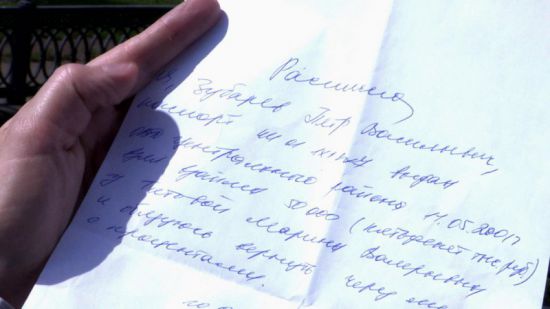 Расписка
Я, Зубарев Пётр Васильевич,
паспорт выдан
Центрального района 11.05.2001г
взял взаймы 50000 (пятьдесят тыс. руб.)
у Титовой Марины Валерьевны
и обязуюсь вернуть через
с процентами.